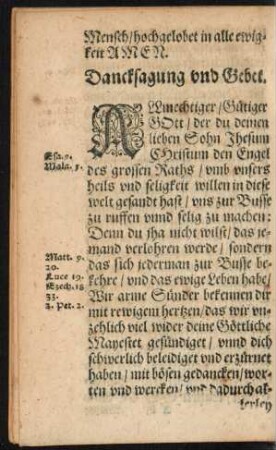 Mensch/hochgelobet in alle ewig-
keit AMEN.
Dancksagung vnd Gebet.
ALlmechtiger/Gütiger
GOtt/der du deinen
lieben Sohn Jhesum
CHristum den Engel
Esa. 9.
Mala. 3.
des grossen Raths/vmb vnsers
heils vnd seligkeit willen in diese
welt gesandt hast/vns zur Busse
zu ruffen vnnd selig zu machen:
Denn du jha nicht wilt/das je-
mand verlohren werde/sondern
das sich jederman zur Busse be-
kehre/vnd das ewige Leben habe/
Matt. 9.
20.
Luce 19.
Ezech. 18
33.
2. Pet. 2.
Wir arme Sünder bekennen dir
mit rewigem hertzen/das wir vn-
zehlich viel wider deine Göttliche
Mayestet gesündiget/vnnd dich
schwerlich beleidiget vnd erzürnet
haben/mit bösen gedancken/wor-
ten vnd wercken/vnd dadurch al-
lerley